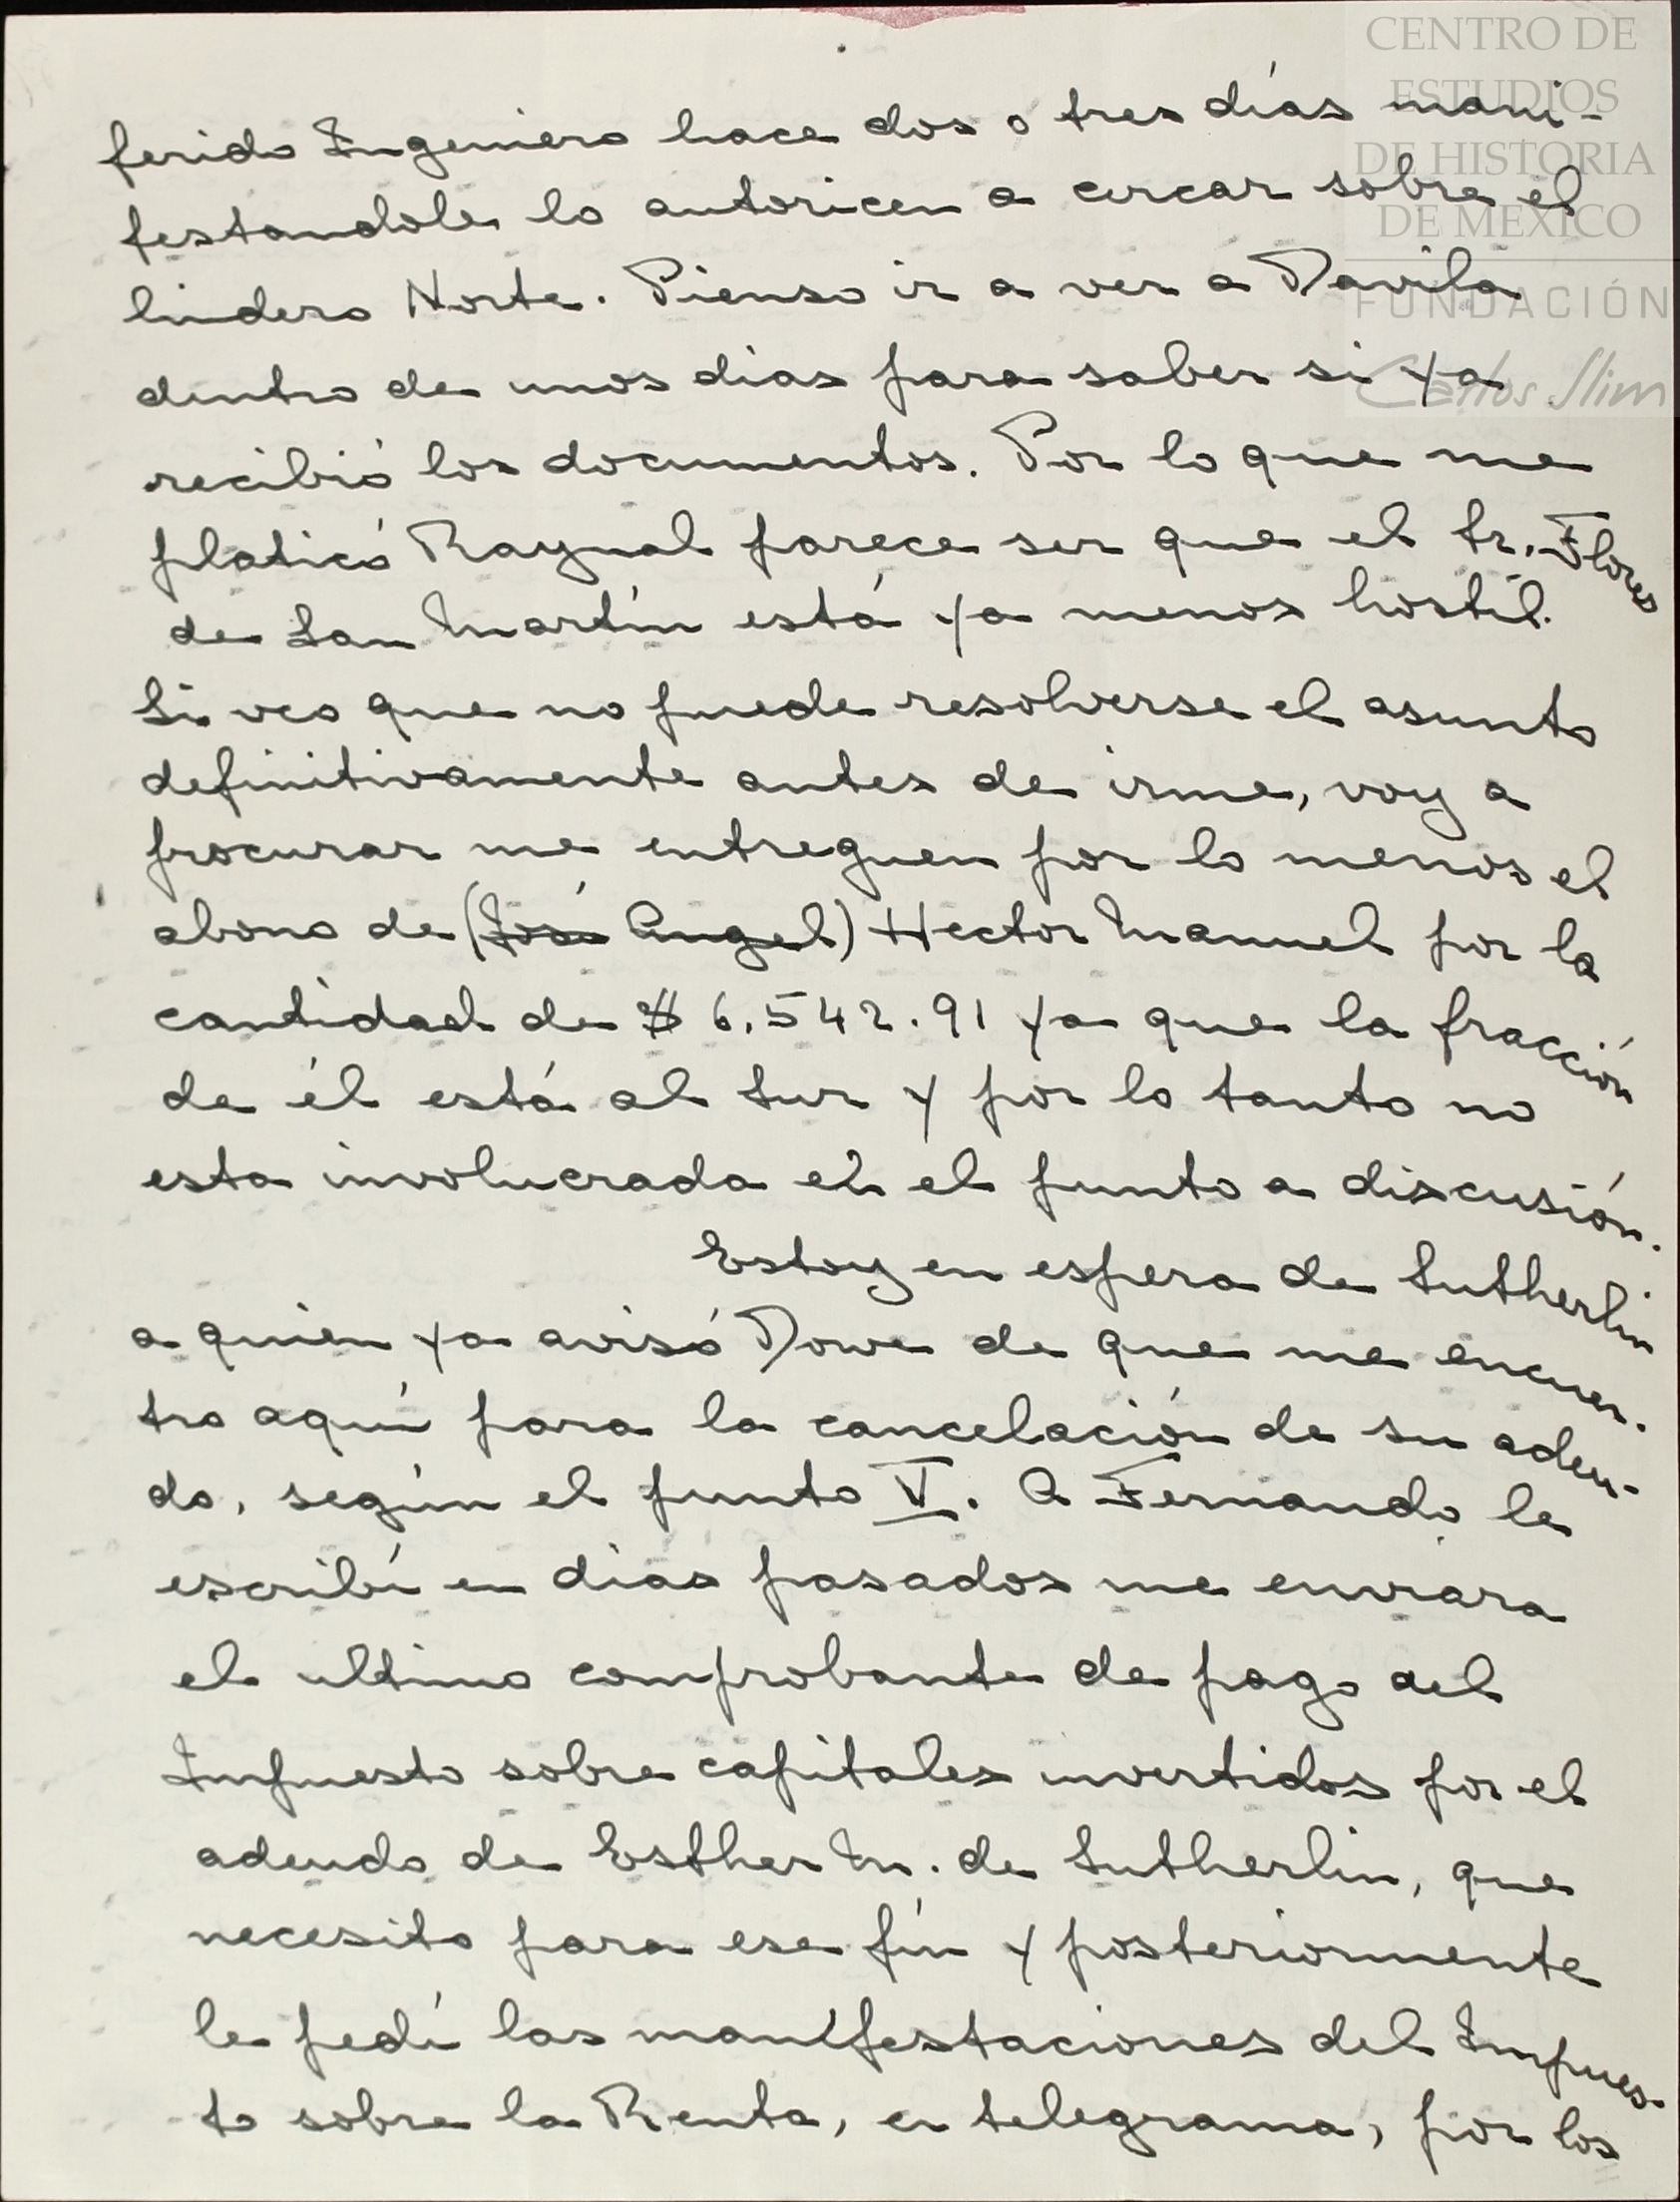 CENTRO DE
ESTUDIOS
DE HISTORIA
DE MEXICO
FUNDACIÓN
Carlos Slim
ferido Ingeniero hace dos o tres días mani-
festandole lo autoricen a cercar sobre el
lindero Norte. Pienso ir a ver a Davila
dentro de unos dias para saber si ya
recibió los documentos. Por lo que me
platicó Raynal parece ser que el Sr. Flores
de San Martín está ya menos hostíl.
Si veo que no puede resolverse el asunto
definitivamente antes de irme, voy a
procurar me entreguen por lo menos el
abono de (José Angel) Hector Manuel por la
cantidad de $ 6.542.91 ya que la fracción
de él está al Sur y por lo tanto no
esta involucrada en el punto a discusión.
Estoy en espera de Sutherlin
a quien ya avisó Dowe de que me encuen-
tro aquí para la cancelación de su adeu-
do, según el punto V. A Fernando le
escribí en dias pasados me enviara
el ultimo comprobante de pago del
Impuesto sobre capitales invertidos por el
adeudo de Esther M. de Sutherlin, que
necesito para ese fín y posteriormente
le pedí las manifestaciones del Impues-
to sobre la Renta, en telegrama, por los